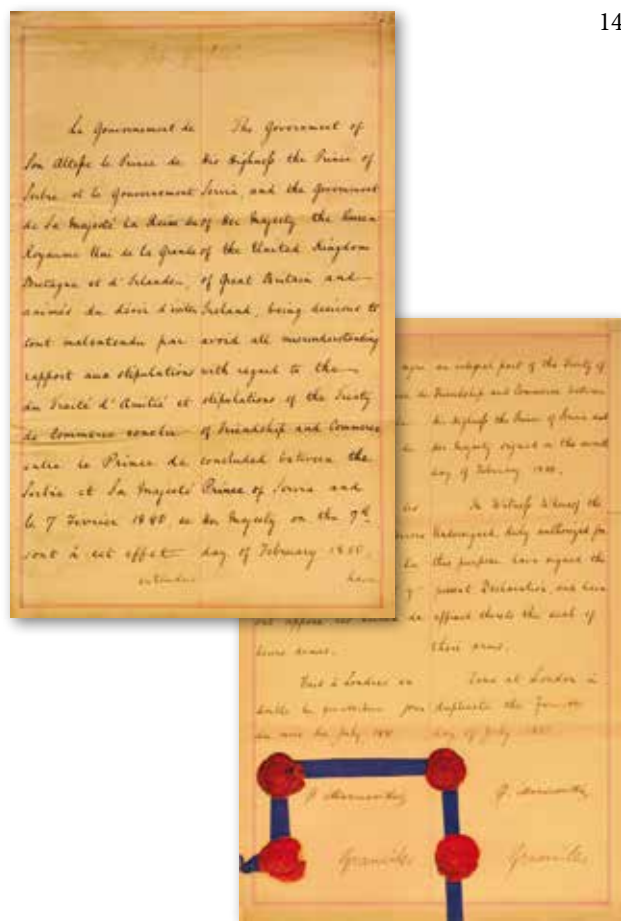 14
Le Gouvernement de
Son Altesse le Prince de
Serbie et le Gouvernement
de Sa Majesté la Reine du
Royaume Uni de la Grande
Bretagne et d'Irlande,
animés du désir d'éviter
tout malentendu par
rapport aux stipulations
du Traité d'Amitié et
de Commerce conclu
entre le Prince de
Serbie et Sa Majesté
le 7 Février 1880, se
sont à cet effet
entendus
The Government of
His Highness the Prince of
Servia, and the Government
of Her Majesty the Queen
of the United Kingdom
of Great Britain and
Ireland, being desirous to
avoid all misunderstanding
with regard to the
stipulations of the Treaty
of Friendship and Commerce
concluded between the
Prince of Servia and
Her Majesty on the 7th
day of February 1880,
have
leurs armes.
Fait à Londres en
double
du mois de July
an integral part of the Treaty of
Friendship and Commerce between
His Highness the Prince of Servia and
Her Majesty signed on the seventh
day of February 1880.
In Witness Whereof the
Undersigned, duly authorized for
this purpose have signed the
present Declaration, and have
affixed thereto the seal of
their arms.
Done at London in
duplicate the
day of July
Granville
Granville